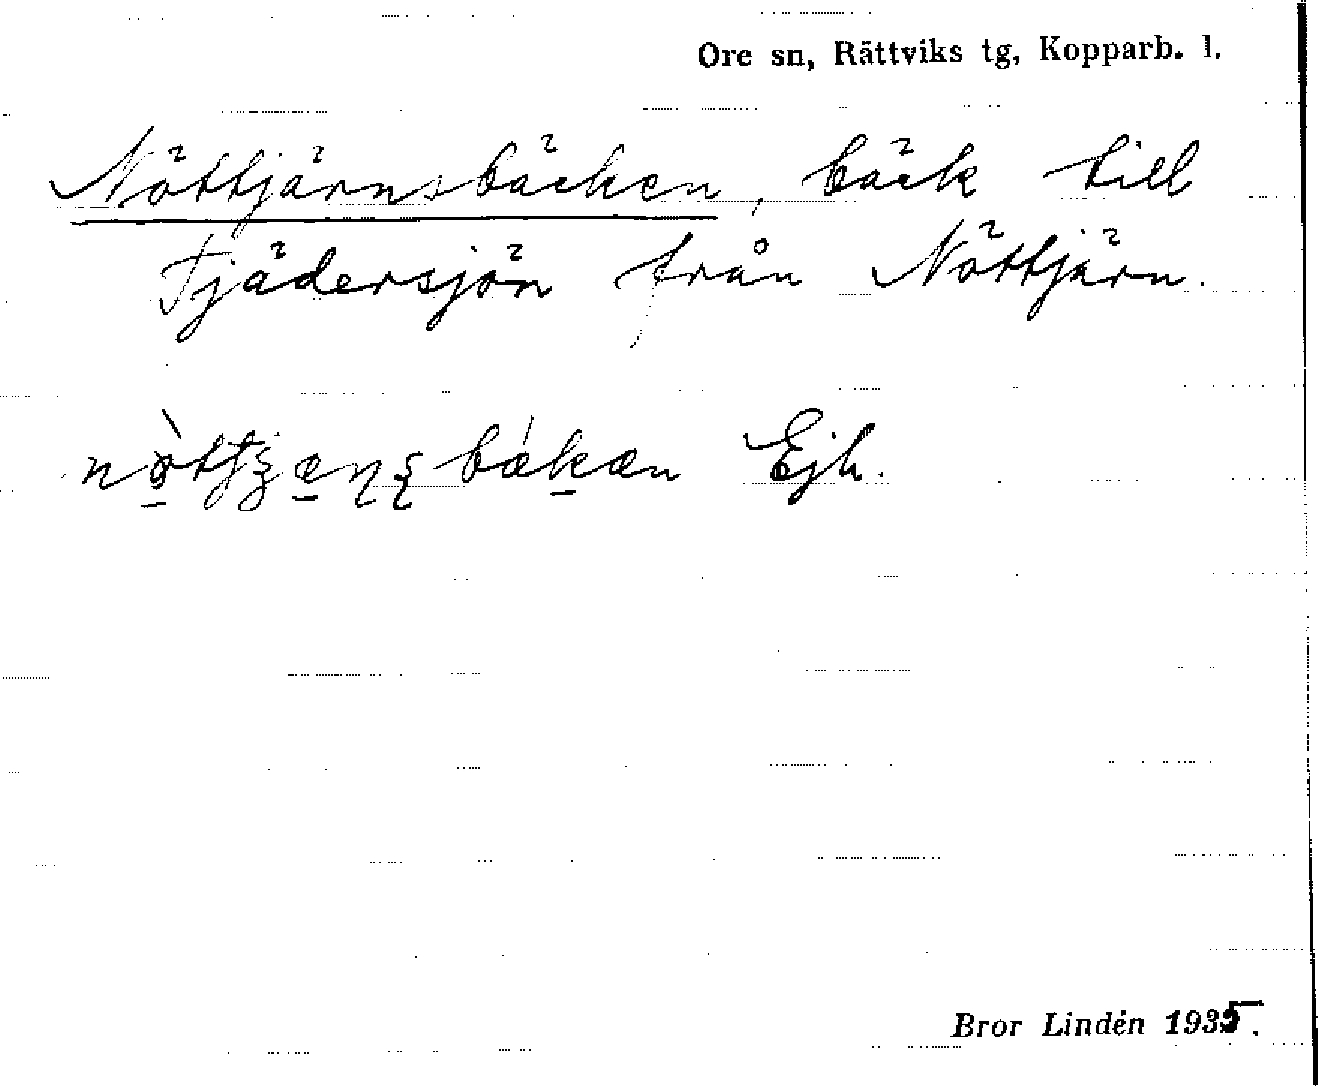 Ore sn, Rättviks tg, Kopparb. l.
Nöttjärnsbäcken, bäck till
Tjädersjön från Nöttjärn.
Ejh.
Bror Lindén 1935.